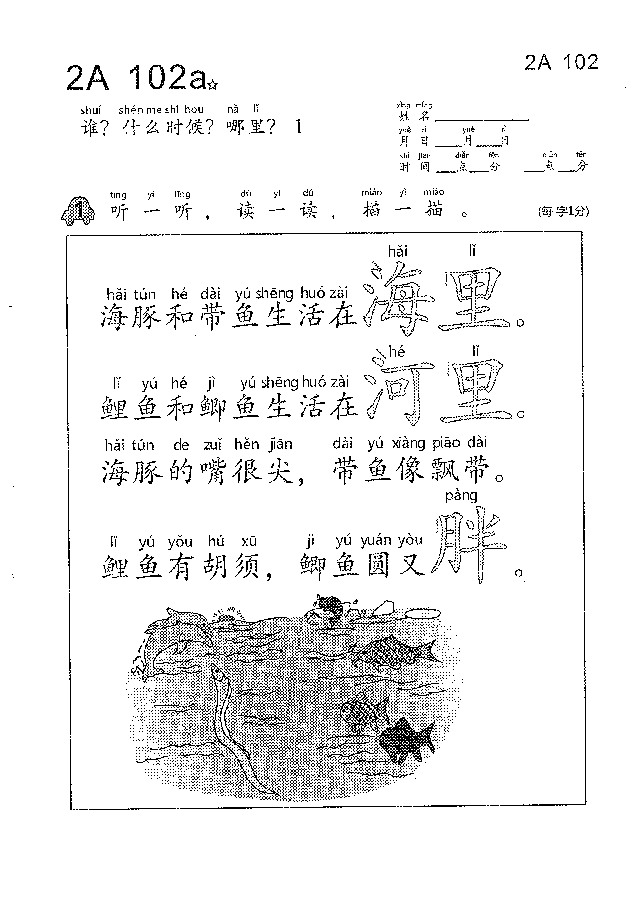 2A 102
2A 102a☆
shuí shén me shí hou nǎ lǐ
谁？什么时候？哪里？1
xìng míng
姓名
yuè rì yuè rì
月日 月 日
shí jiān diǎn fēn diǎn fēn
时间 点 分 点 分
1
tīng yi tīng dú yi dú miáo yi miáo
听一听，读一读，描一描。 (每字1分)
hǎi lǐ
hǎi tún hé dài yú shēng huó zài
海豚和带鱼生活在海里。
hé lǐ
lǐ yú hé jì yú shēng huó zài
鲤鱼和鲫鱼生活在河里。
hǎi tún de zuǐ hěn jiān dài yú xiàng piāo dài
海豚的嘴很尖，带鱼像飘带。
pàng
lǐ yú yǒu hú xū jì yú yuán yòu
鲤鱼有胡须，鲫鱼圆又胖。